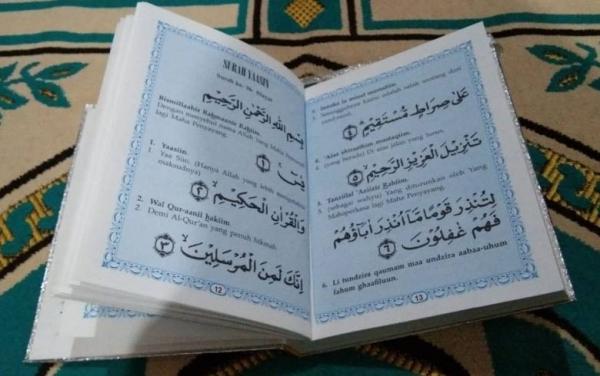 SURAH YAASIN
Surah ke: 36:
بِسْمِ اللهِ الرَّحْمٰنِ الرَّحِيْمِ
Bismillaahir Rahmaanir Rahiim.
Dengan menyebut nama Allah Yang Maha
lagi Maha Penyayang.
يٰسٓ ۝١
1. Yaasiin.
1. Yaa Siin. (Hanya Allah yang lebih mengetahui
maksudnya)
وَالْقُرْاٰنِ الْحَكِيْمِ ۝٢
2. Wal Qur-aanil hakiim.
2. Demi Al-Qur'an yang penuh hikmah.
اِنَّكَ لَمِنَ الْمُرْسَلِيْنَ ۝٣
12
3. Innaka la minal mursaliin.
3. Sesungguhnya kamu adalah salah seorang dari
عَلٰى صِرَاطٍ مُّسْتَقِيْمٍ ۝٤
4. 'Alaa shiraathim mustaqiim.
4. (yang berada) Di atas jalan yang lurus.
تَنْزِيْلَ الْعَزِيْزِ الرَّحِيْمِ ۝٥
5. Tanziilal 'Aziizir Rahiim.
5. (sebagai wahyu) Yang diturunkan oleh Yang
Mahaperkasa lagi Maha Penyayang.
لِتُنْذِرَ قَوْمًا مَّا اُنْذِرَ اٰبَاۤؤُهُمْ
فَهُمْ غٰفِلُوْنَ ۝٦
6. Li tundzira qaumam maa undzira aabaa-uhum
fahum ghaafiluun.
13